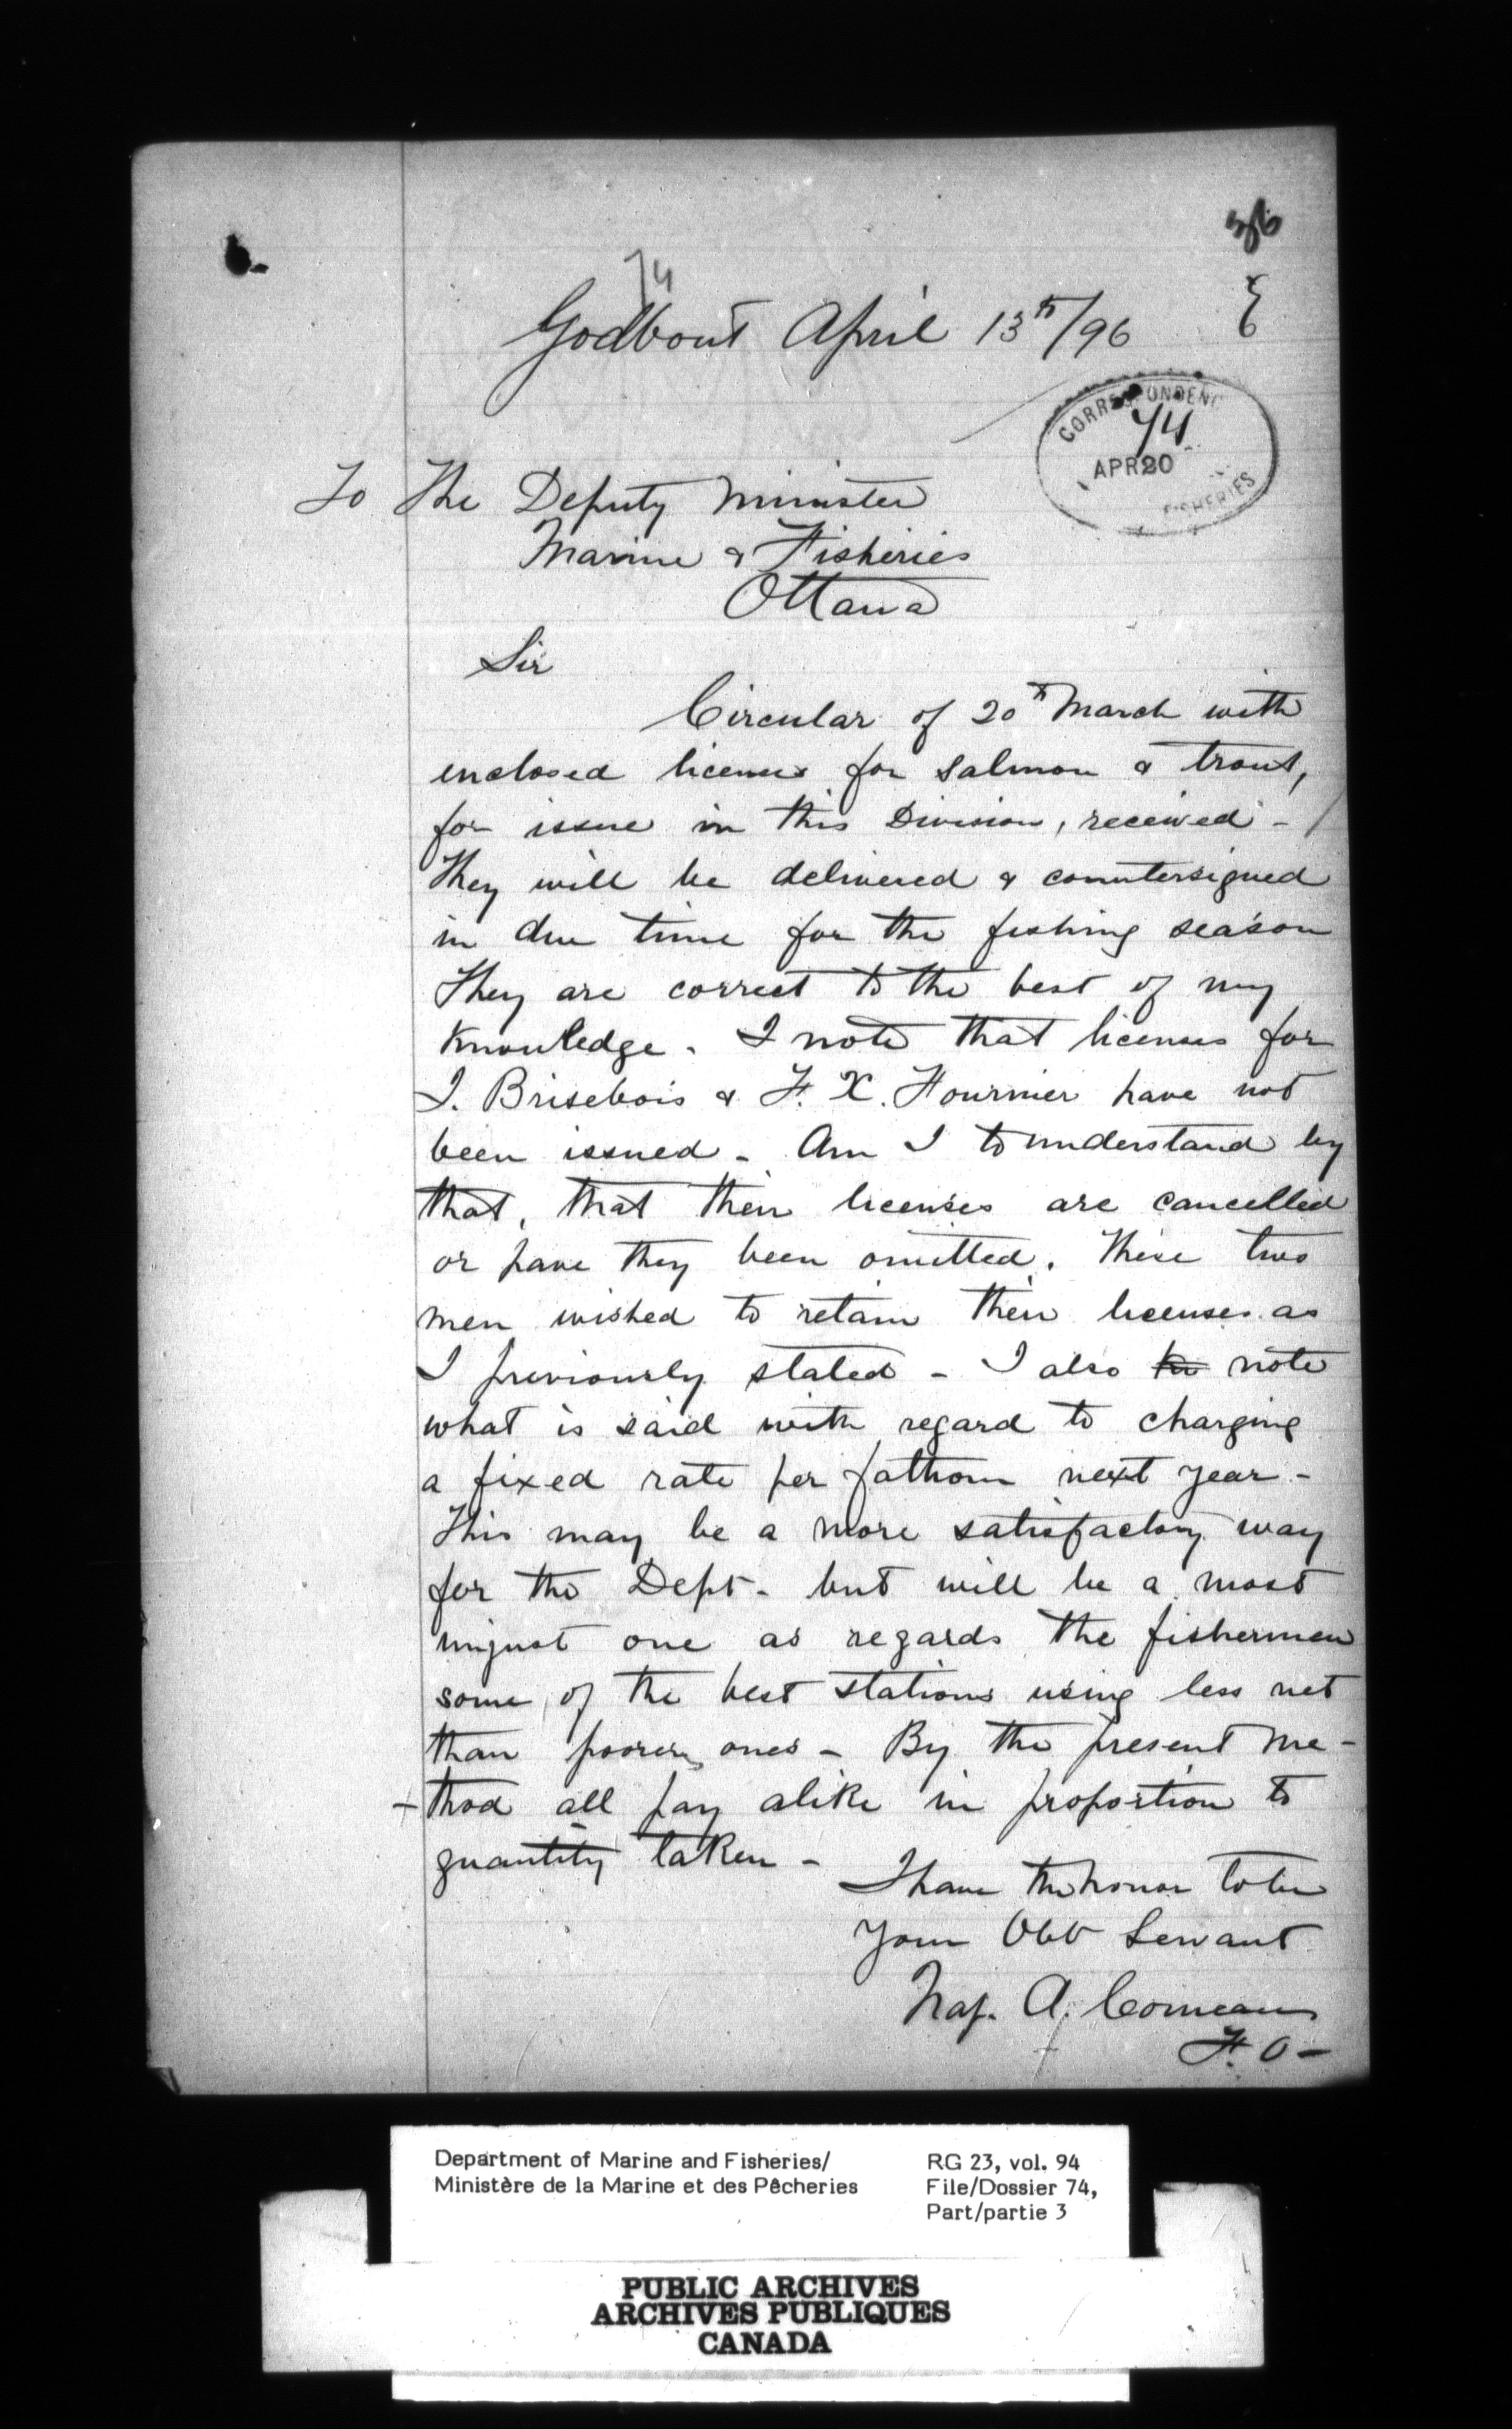 74
Godbout April 13th/96
CORRESPONDENC
74
APR 20
FISHERIES
To The Deputy Minister
Marine & Fisheries
Ottawa
Sir
Circular of 20th March with
enclosed licenses for salmon & trout,
for issue in this Division, received -
They will be delivered & countersigned
in due time for the fishing season
They are correct to the best of my
knowledge. I note that licenses for
I. Brisebois & F. X. Fournier have not
been issued - Am I to understand by
that, that their licenses are cancelled
or have they been omitted. These two
men wished to retain their licenses as
I previously stated - I also note
what is said with regard to charging
a fixed rate per fathom next year -
This may be a more satisfactory way
for the Dept - but will be a most
unjust one as regards the fishermen
some of the best stations using less net
than poorer ones - By the present me-
-thod all pay alike in proportion to
quantity taken -
I have the honor to be
Your Obt Servant
Nap. A. Comeau
F. O -
Department of Marine and Fisheries/
Ministère de la Marine et des Pêcheries
RG 23, vol. 94
File/Dossier 74,
Part/partie 3
PUBLIC ARCHIVES
ARCHIVES PUBLIQUES
CANADA